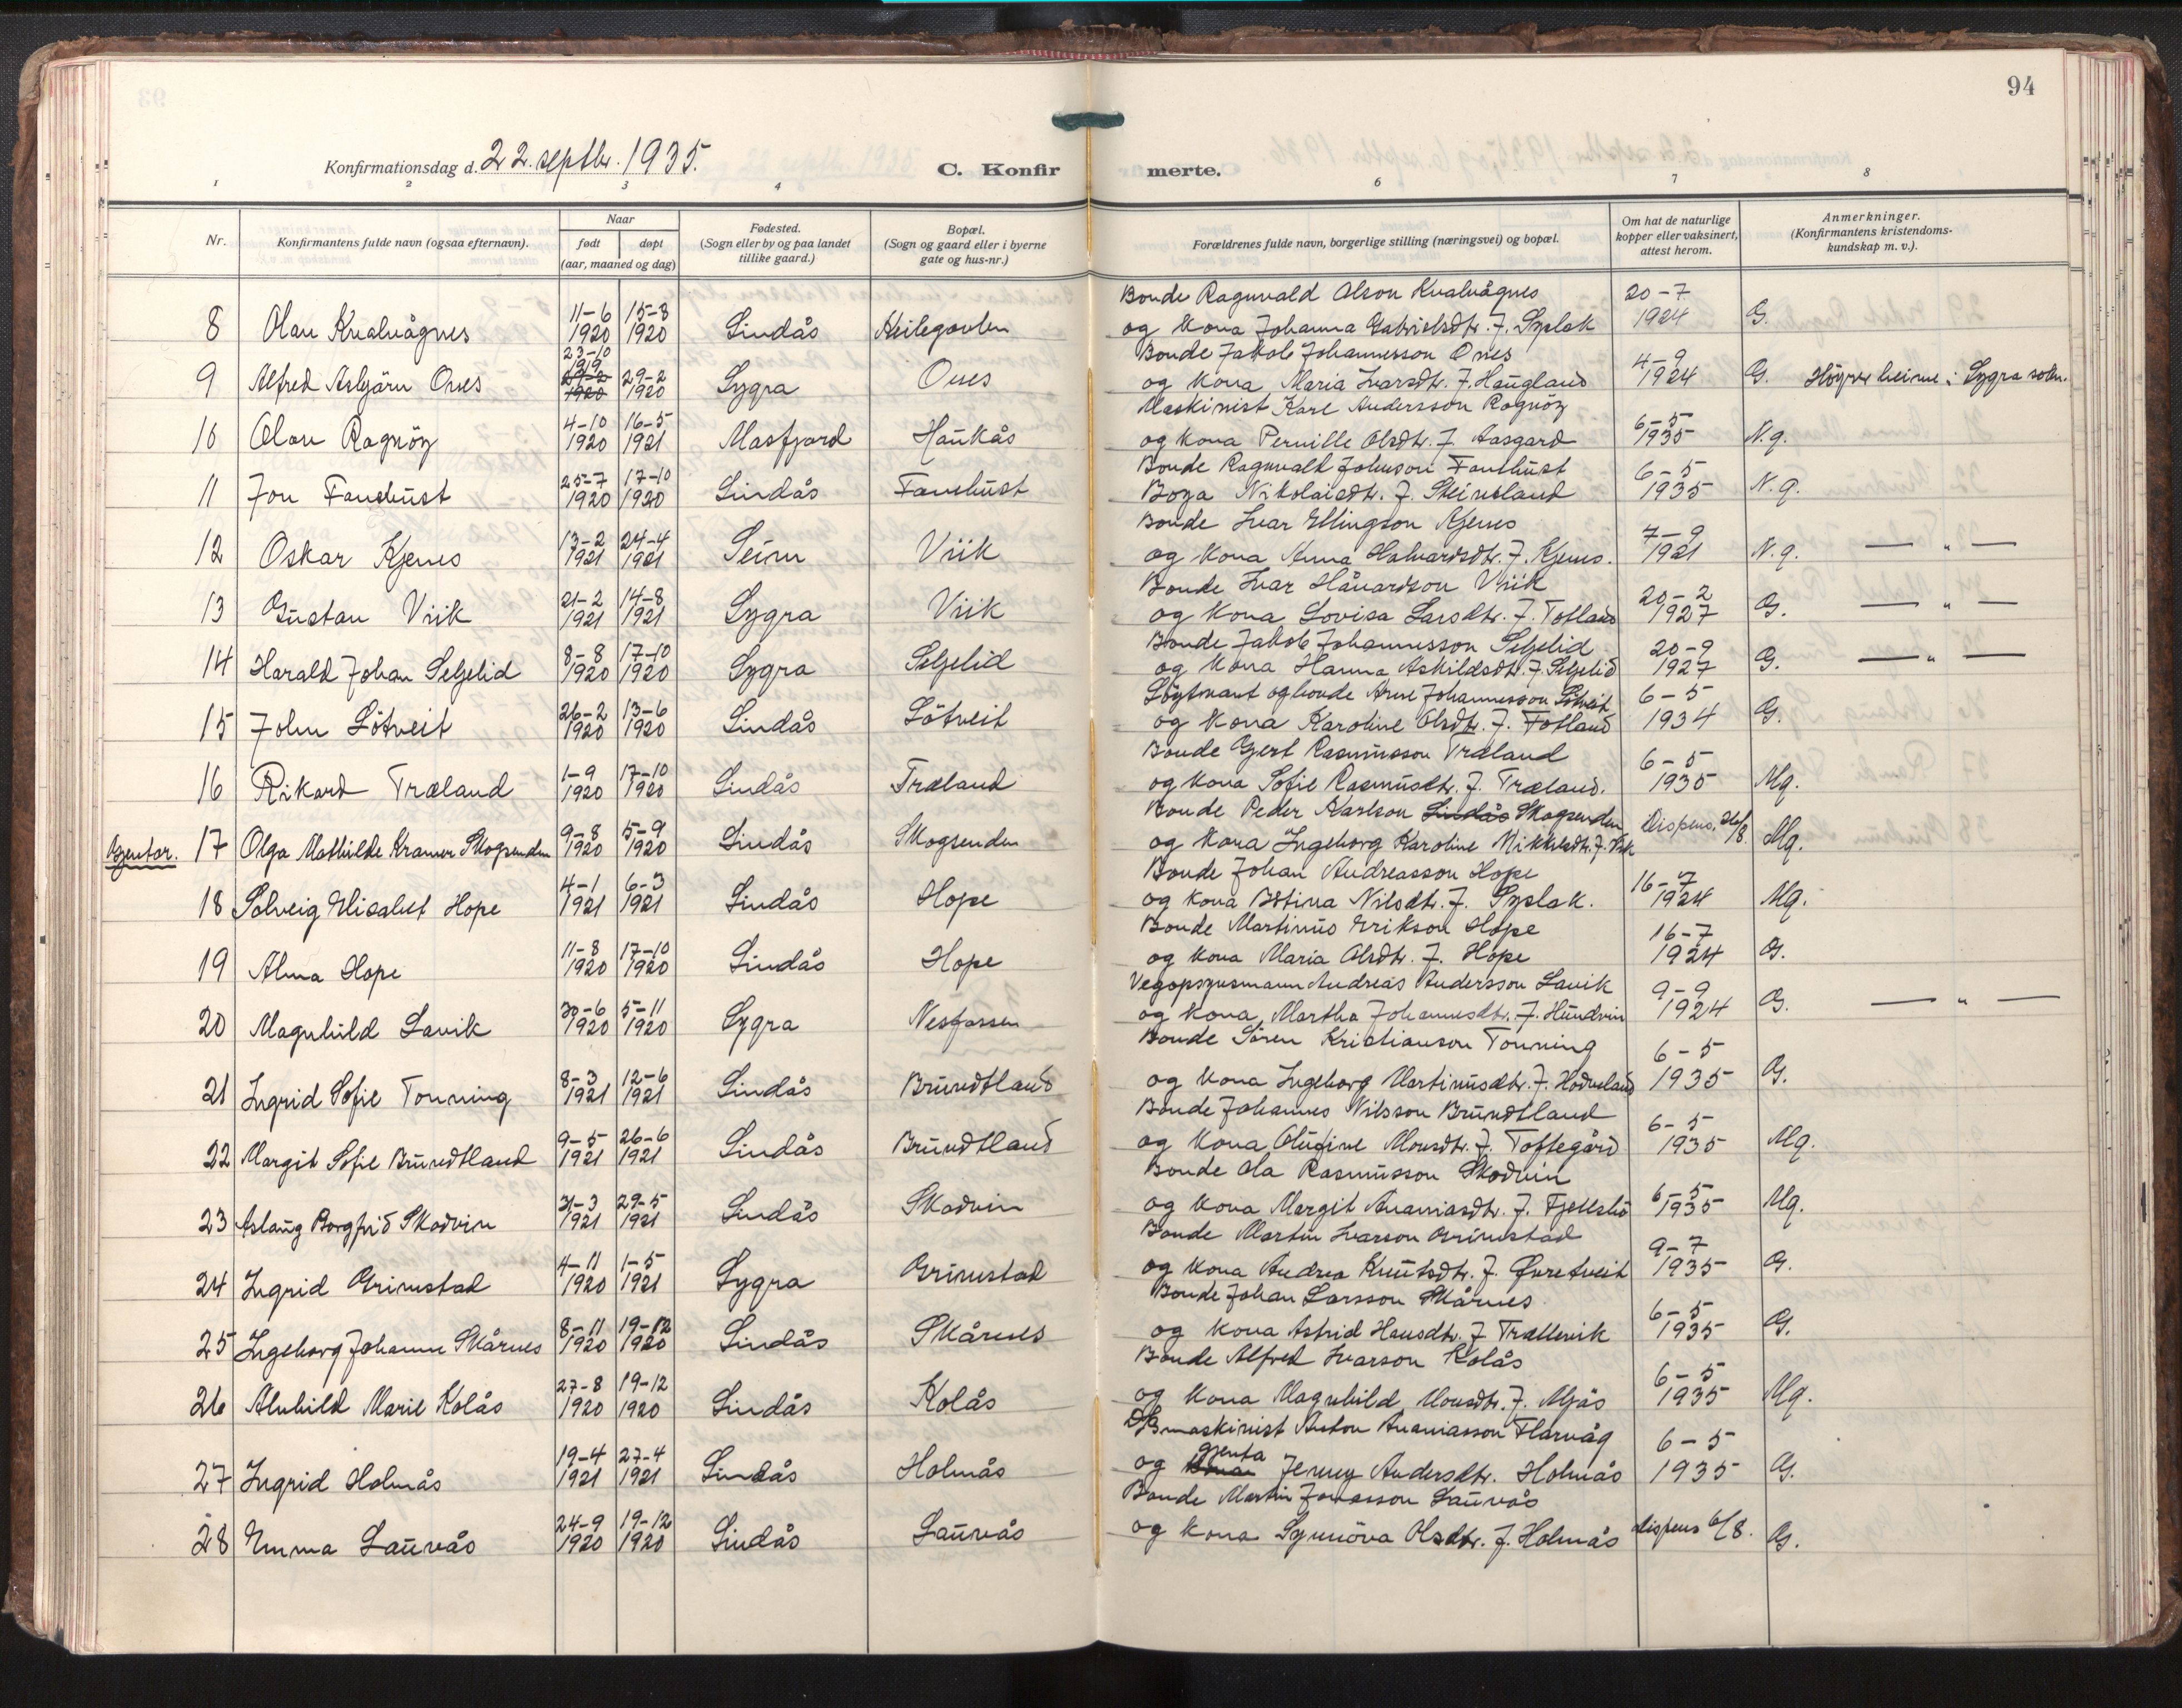 94
Konfirmationsdag d. 22. septbr. 1935.
C. Konfirmerte.
1 2 3 4 6 7 8
Nr.
Konfirmantens fulde navn (ogsaa efternavn).
Naar
født døpt
(aar, maaned og dag)
Fødested.
(Sogn eller by og paa landet
tillike gaard.)
Bopæl.
(Sogn og gaard eller i byerne
gate og hus-nr.)
Forældrenes fulde navn, borgerlige stilling (næringsvei) og bopæl.
Om hat de naturlige
kopper eller vaksinert,
attest herom.
Anmerkninger.
(Konfirmantens kristendoms-
kundskap m. v.).
Bonde Ragnvald Olson Kvalvågnes 20-7
8 Olav Kvalvågnes 11-6 1920 15-8 1920 Lindås og kona Johanna Gabrielsdtr. f. Syslak 1924 G.
Bonde Jakob Johannesson Ones
9 Alfred Asbjörn Ones 23-10 1919 29-2 1920 29-2 1920 Lygra Ones og kona Maria Ivarsdtr. f. Haugland 4-9 1924 G. Höyrer heime i Lygra sokn.
Maskinist Karl Andersson Rognöy
10 Olav Rognöy 4-10 1920 16-5 1921 Masfjord Haukås og kona Pernille Olsdtr. f. Aasgard 6-5 1935 N.g.
Bonde Ragnvald Johnson Fanebust
11 Jon Fanebust 25-7 1920 17-10 1920 Lindås Fanebust Boya Nikolaisdtr. f. Steinsland 6-5 1935 N.g.
Bonde Ivar Ellingson Kjenes
12 Oskar Kjenes 13-2 1921 24-4 1921 Seim Viik og kona Anna Halvardsdtr. f. Kjenes. 7-9 1921 N.g. — " —
Bonde Ivar Håvardson Vik
13 Gustav Viik 21-2 1921 14-8 1921 Lygra Viik og kona Lovisa Larsdtr. f. Totland 20-2 1927 G. — " —
Bonde Jakob Johannesson Seljelid
14 Harald Johan Seljelid 8-8 1920 17-10 1920 Lygra Seljelid og kona Hanna Askildsdtr. f. Seljelid 20-9 1927 G. — " —
Löytnant og bonde Arne Johannesson Lötveit
15 John Lötveit 26-2 1920 13-6 1920 Lindås Lötveit og kona Karoline Olsdtr. f. Totland 6-5 1934 G.
Bonde Gjert Rasmusson Træland
16 Rikard Træland 1-9 1920 17-10 1920 Lindås Træland og kona Sofie Rasmusdtr. f. Træland. 6-5 1935 Mg.
Bonde Peder Karlson Lindås Skogsenden
Gjentor. 17 Olga Mathilde Kramer Skogsenden 9-8 1920 5-9 1920 Lindås Skogsenden og kona Ingeborg Karoline Mikkelsdtr. f. Vik Dispens. 26/8. Mg.
Bonde Johan Andreasson Hope
18 Solveig Elisabet Hope 4-1 1921 6-3 1921 Lindås Hope og kona Bstina Nilsdtr. f. Syslak. 16-7 1924 Mg.
Bonde Martinus Erikson Hope
19 Alma Hope 11-8 1920 17-10 1920 Lindås Hope og kona Maria Olsdtr. f. Hope 16-7 1924 G.
Vegopsynsmann Andreas Andersson Lavik
20 Magnhild Lavik 30-6 1920 5-11 1920 Lygra Nesfossen og kona Martha Johannesdtr. f. Hundvin 9-9 1924 G. — " —
Bonde Sören Kristianson Tonning
21 Ingrid Sofie Tonning 8-3 1921 12-6 1921 Lindås Brundtland og kona Ingeborg Martinusdtr. f. Hodneland 6-5 1935 G.
Bonde Johannes Nilsson Brundtland
22 Margit Sofie Brundtland 9-5 1921 26-6 1921 Lindås Brundtland og kona Olufine Monsdtr. f. Toftegård 6-5 1935 Mg.
Bonde Ola Rasmusson Skodvin
23 Aslaug Borgfrid Skodvin 31-3 1921 29-5 1921 Lindås Skodvin og kona Margit Ananiasdtr. f. Fjellsbö 6-5 1935 Mg.
Bonde Martin Ivarson Grimstad
24 Ingrid Grimstad 4-11 1920 1-5 1921 Lygra Grimstad og kona Andrea Knutsdtr. f. Øvretveit 9-7 1935 G.
Bonde Johan Larsson Skårnes
25 Ingeborg Johanne Skårnes 8-11 1920 19-12 1920 Lindås Skårnes og kona Astrid Hansdtr. f. Trællevik 6-5 1935 G.
Bonde Alfred Ivarson Kolås
26 Alvhild Marie Kolås 27-8 1920 19-12 1920 Lindås Kolås og kona Magnhild Monsdtr. f. Mjös 6-5 1935 Mg.
Maskinist Anton Ananiasson Flarvåg
27 Ingrid Holmås 19-4 1921 27-4 1921 Lindås Holmås og kona gjenta Jenny Andersdtr. Holmås 6-5 1935 G.
Bonde Martin Jonasson Laurås
28 Emma Laurås 24-9 1920 19-12 1920 Lindås Laurås og kona Synnöva Olsdtr. f. Holmås dispens 6/8. G.